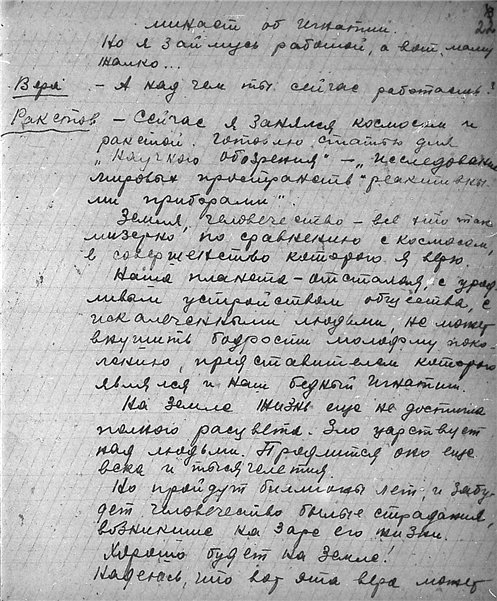 22
минает об Игнатии.
Но я займусь работой, а вот маму
жалко...
Вера – А над чем ты сейчас работаешь?
Ракетов – Сейчас я занялся космосом и
ракетой. Готовлю статью для
„Научного обозрения“ – „Исследование
мировых пространств реактивны-
ми приборами“.
Земля, человечество – всё это так
мизерно по сравнению с космосом,
в совершенство которого я верю.
Наша планета – отсталая, с урод-
ливым устройством общества, с
искалеченными людьми, не может
внушить бодрости молодому поко-
лению, представителем которого
являлся и наш бедный Игнатий.
На Земле жизнь еще не достигла
полного расцвета. Зло царствует
над людьми. Продлится оно еще
века и тысячелетия
Но пройдут биллионы лет и забу-
дет человечество былые страдания,
возникшие на заре его жизни.
Хорошо будет на Земле!
Надеюсь, что вот эта вера может